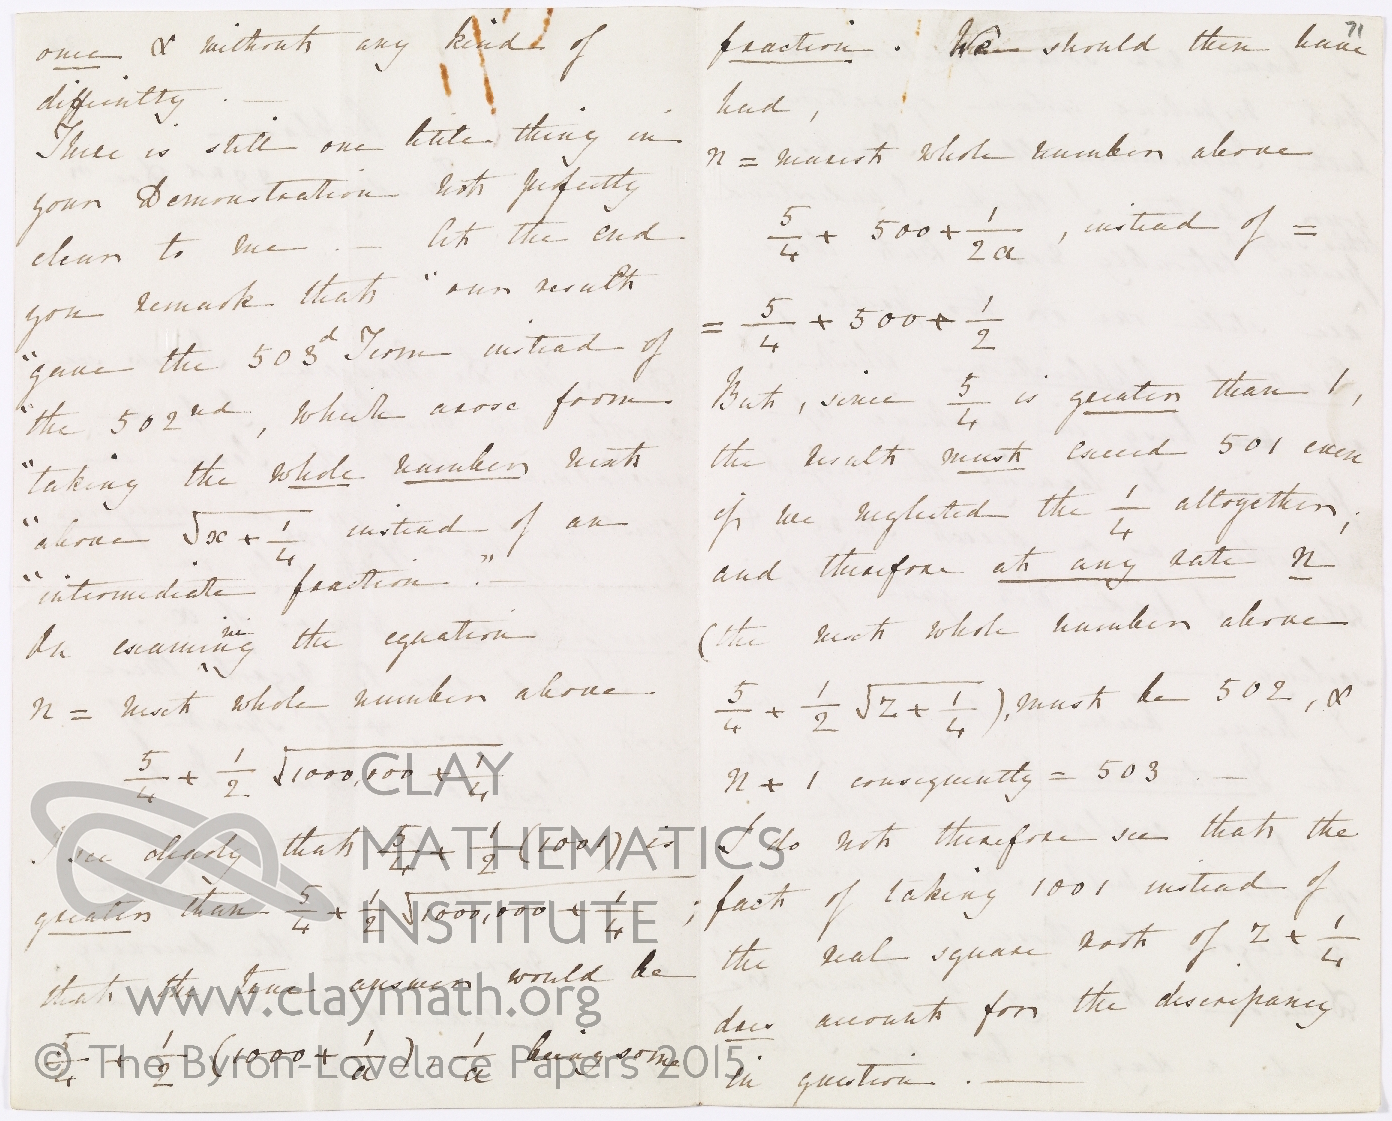 once & without any kind of
difficulty. —
There is still one little thing in
your Demonstration not perfectly
clear to me. — At the end
you remark that "our result
"gave the 503d Term instead of
"the 502nd, which arose from
"taking the whole number next
"above √(x + 1/4) instead of an
"intermediate fraction". —
On examining the equation
n = next whole number above
5/4 + 1/2 √(1000,000 + 1/4)
I see clearly that 5/4 + 1/2 (1001) is
greater than 5/4 + 1/2 √(1000,000 + 1/4);
that the true answer would be
5/4 + 1/2 (1000 + 1/a), 1/a being some
71
fraction. We should then have
had,
n = nearest whole number above
5/4 + 500 + 1/2a, instead of =
= 5/4 + 500 + 1/2
But, since 5/4 is greater than 1,
the result must exceed 501 even
if we neglected the 1/4 altogether;
and therefore at any rate n
(the next whole number above
5/4 + 1/2 √(z + 1/4)), must be 502, &
n + 1 consequently = 503. —
I do not therefore see that the
fact of taking 1001 instead of
the real square root of z + 1/4
does account for the discrepancy
in question. —
CLAY
MATHEMATICS
INSTITUTE
www.claymath.org
© The Byron-Lovelace Papers 2015